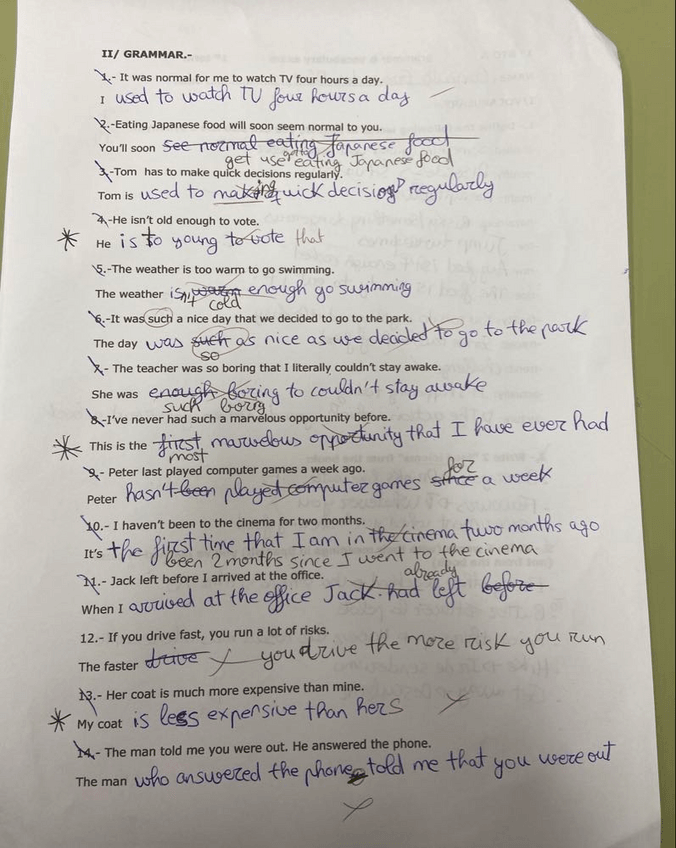 II/ GRAMMAR.-
1.- It was normal for me to watch TV four hours a day.
I used to watch TV four hours a day
2.-Eating Japanese food will soon seem normal to you.
You'll soon see normal eating Japanese food
get use eating Japanese food
3.-Tom has to make quick decisions regularly.
Tom is used to making quick decision regularly
4.-He isn't old enough to vote.
He is to young to vote that
5.-The weather is too warm to go swimming.
The weather isn't warm enough go swimming
cold
6.-It was such a nice day that we decided to go to the park.
The day was such as nice as we decided to go to the park
so
7.- The teacher was so boring that I literally couldn't stay awake.
She was enough boring to couldn't stay awake
such boring
8.-I've never had such a marvelous opportunity before.
This is the first marvelous opportunity that I have ever had
most
9.- Peter last played computer games a week ago.
for
Peter hasn't been played computer games since a week
10.- I haven't been to the cinema for two months.
It's the first time that I am in the cinema two months ago
been 2 months since I went to the cinema
11.- Jack left before I arrived at the office.
already
When I arrived at the office Jack had left before
12.- If you drive fast, you run a lot of risks.
The faster drive you drive the more risk you run
13.- Her coat is much more expensive than mine.
My coat is less expensive than hers
14.- The man told me you were out. He answered the phone.
The man who answered the phone told me that you were out